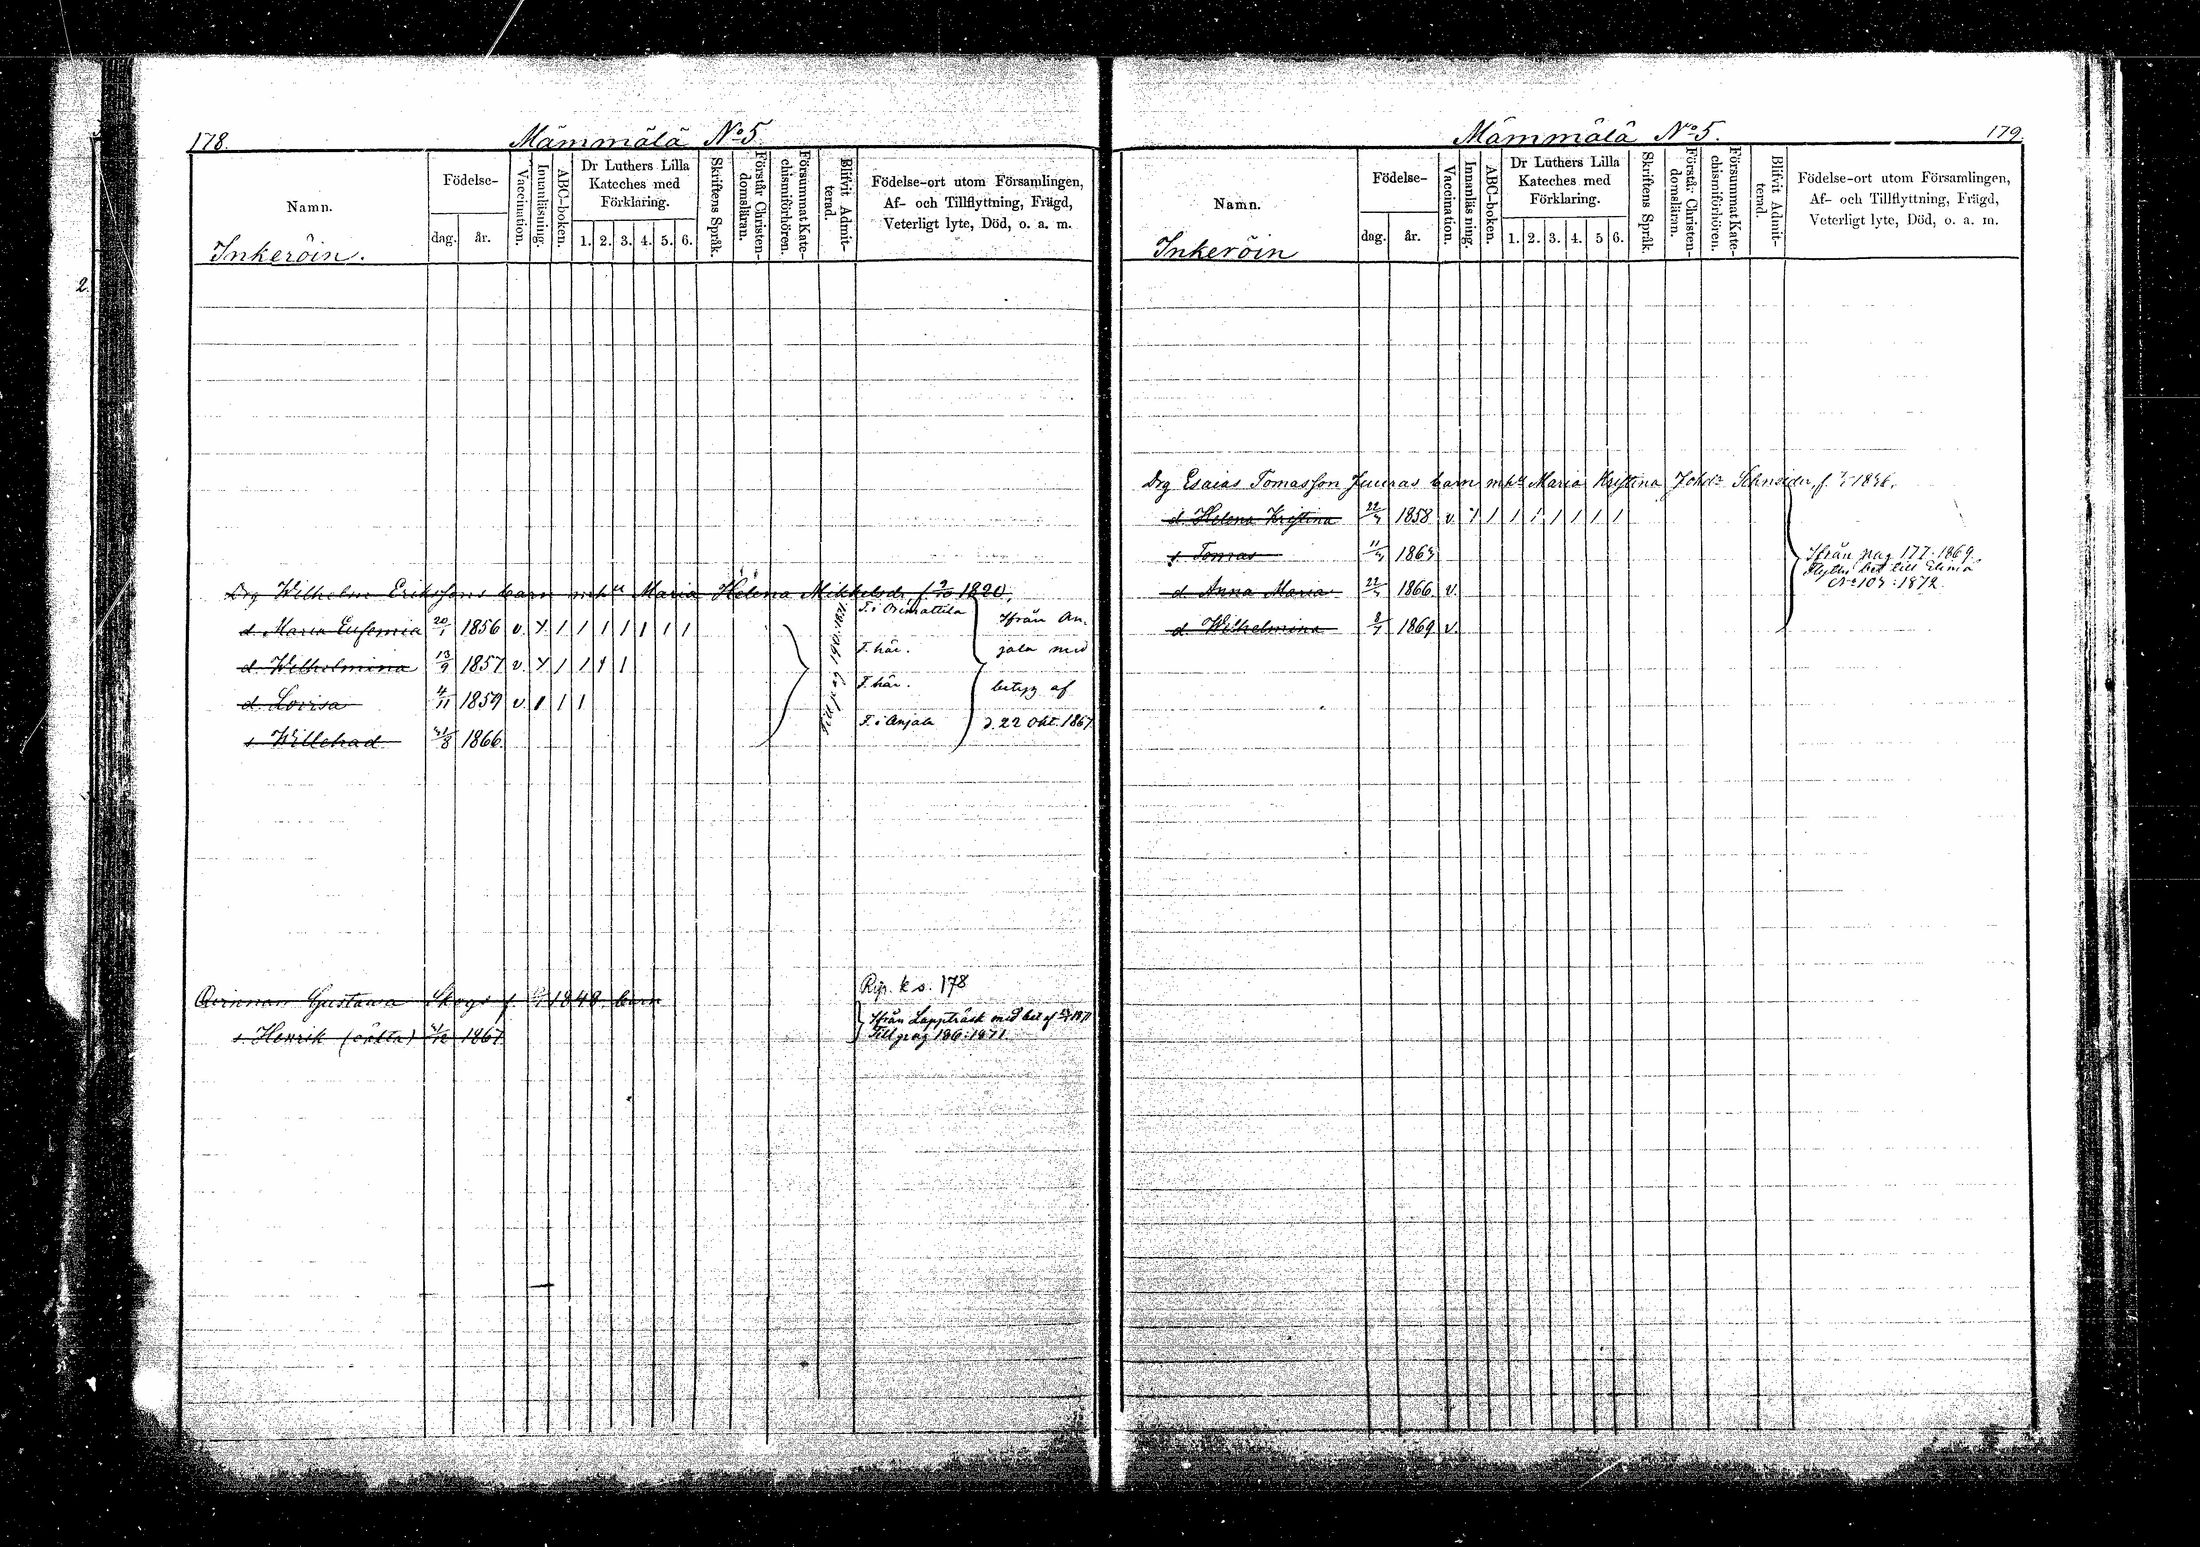 178.
Mämmälä No 5
Namn.
Födelse-
dag. år.
Vaccination.
Innanläsning.
ABC-boken.
Dr Luthers Lilla
Kateches med
Förklaring.
1. 2. 3. 4. 5. 6.
Skriftens Språk.
Förstår Christen-
domsläran.
Försummat Kate-
chismiförhören.
Blifvit Admit-
terad.
Födelse-ort utom Församlingen,
Af- och Tillflyttning, Frägd,
Veterligt lyte, Död, o. a. m.
Inkeröin.
Drg Wilhelm Erikssons barn mh. Maria Helena Mikkelsdr f. 2/10 1820.
d. Maria Eufemia 20/1 1856 v.
F. i Orimattila
d. Wilhelmina 13/9 1857 v.
F. här.
d. Lovisa 4/11 1859 v.
F. här.
s. Willehad 31/8 1866.
F. i Anjala
Ifrån An-
jala med
betyg af
d 22 Okt. 1867.
Till pag 190. 1871.
Qvinnan Gustava Skogs f. 1848. barn
s. Henrik (oäkta) 31/12 1867
Rip. k s. 178
Ifrån Lappträsk med bet af 1871
Till pag 186: 1871.
Mämmälä No 5.
179.
Namn.
Födelse-
dag. år.
Vaccination.
Innanläsning.
ABC-boken.
Dr Luthers Lilla
Kateches med
Förklaring.
1. 2. 3. 4. 5 6.
Skriftens Språk.
Förstår Christen-
domsläran.
Försummat Kate-
chismiförhören.
Blifvit Admit-
terad.
Födelse-ort utom Församlingen,
Af- och Tillflyttning, Frägd,
Veterligt lyte, Död, o. a. m.
Inkeröin
Drg Esaias Tomasson Juuras barn mh. Maria Kristina Johdr Schneider, f. 1836.
d. Helena Kristina 1858 v.
s. Tomas 1863
d. Anna Maria 1866 v.
d. Wilhelmina 1869 v.
Ifrån pag 177. 1869
Flyttn. bet till Elimä
No 103: 1872.